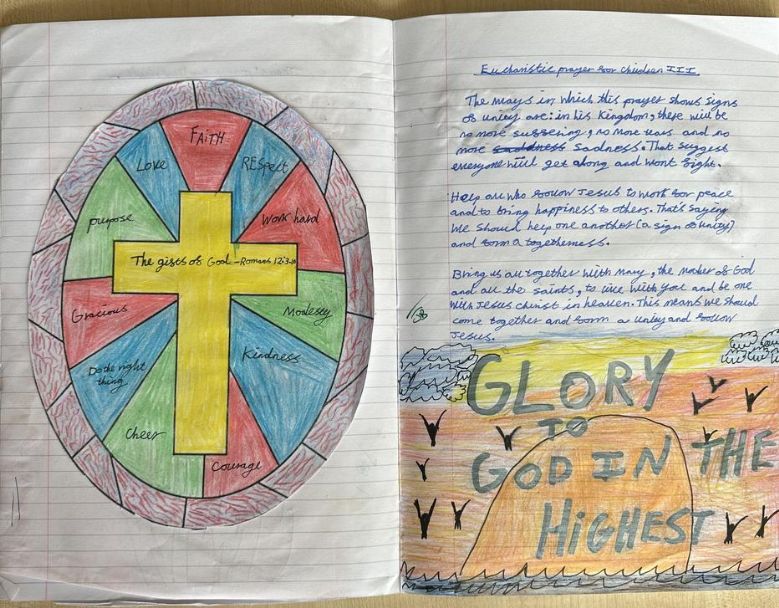 FAITH
Love
RESpect
purpose
Work hard
The gifts of God - Romans 12:3-10
Gracious
Modesty
Do the right
thing
Kindness
Cheer
Courage
Eucharistic prayer for children III
The ways in which this prayer shows signs
of unity are: in his Kingdom, there will be
no more suffering, no more tears and no
more saddness sadness. That suggest
everyone will get along and wont fight.
Help all who follow Jesus to work for peace
and to bring happiness to others. That's saying
we should help one another (a sign of unity)
and form a togetherness.
Bring us all together with Mary, the mother of God
and all the saints, to live with you and be one
with Jesus christ in heaven. This means we should
come together and form a unity and follow
Jesus.
GLORY
TO
GOD IN THE
HiGHEST